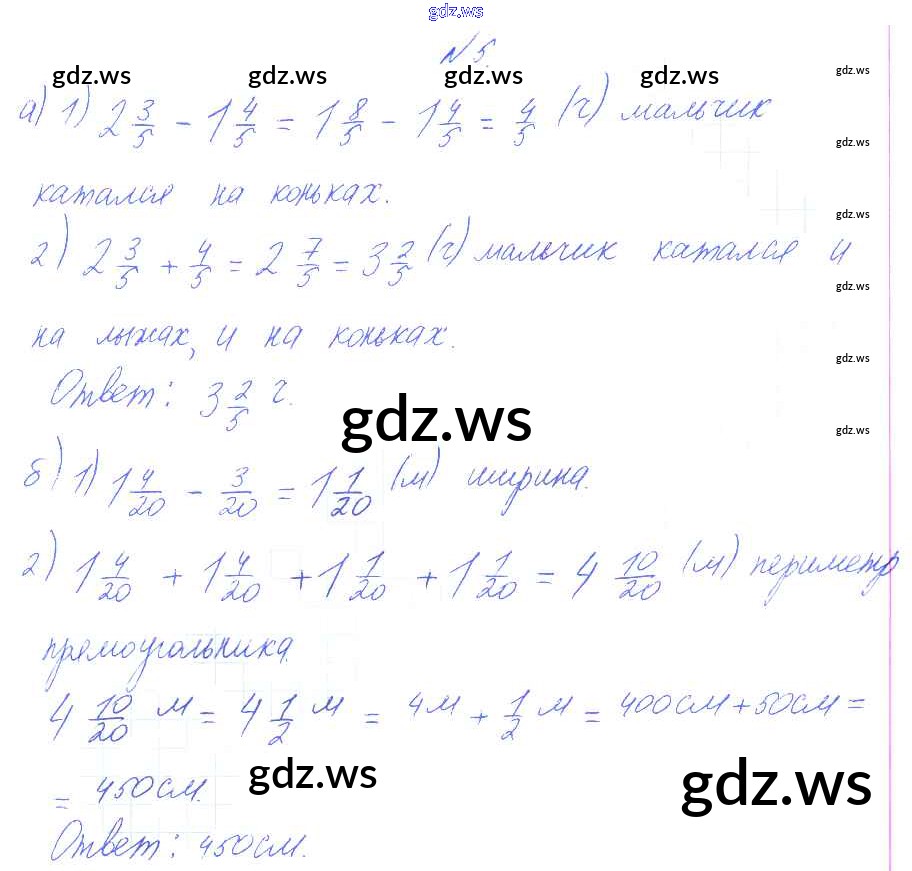 gdz.ws
№ 5.
gdz.ws gdz.ws gdz.ws gdz.ws gdz.ws
а) 1) 2 3/5 - 1 4/5 = 1 8/5 - 1 4/5 = 4/5 (ч) мальчик
gdz.ws
катался на коньках.
gdz.ws
2) 2 3/5 + 4/5 = 2 7/5 = 3 2/5 (ч) мальчик катался и
gdz.ws
на лыжах, и на коньках.
gdz.ws
Ответ: 3 2/5 ч.
gdz.ws gdz.ws
б) 1) 1 4/20 - 3/20 = 1 1/20 (м) ширина.
2) 1 4/20 + 1 4/20 + 1 1/20 + 1 1/20 = 4 10/20 (м) периметр
прямоугольника.
4 10/20 м = 4 1/2 м = 4м + 1/2 м = 400см + 50см =
= 450см.
gdz.ws gdz.ws
Ответ: 450см.